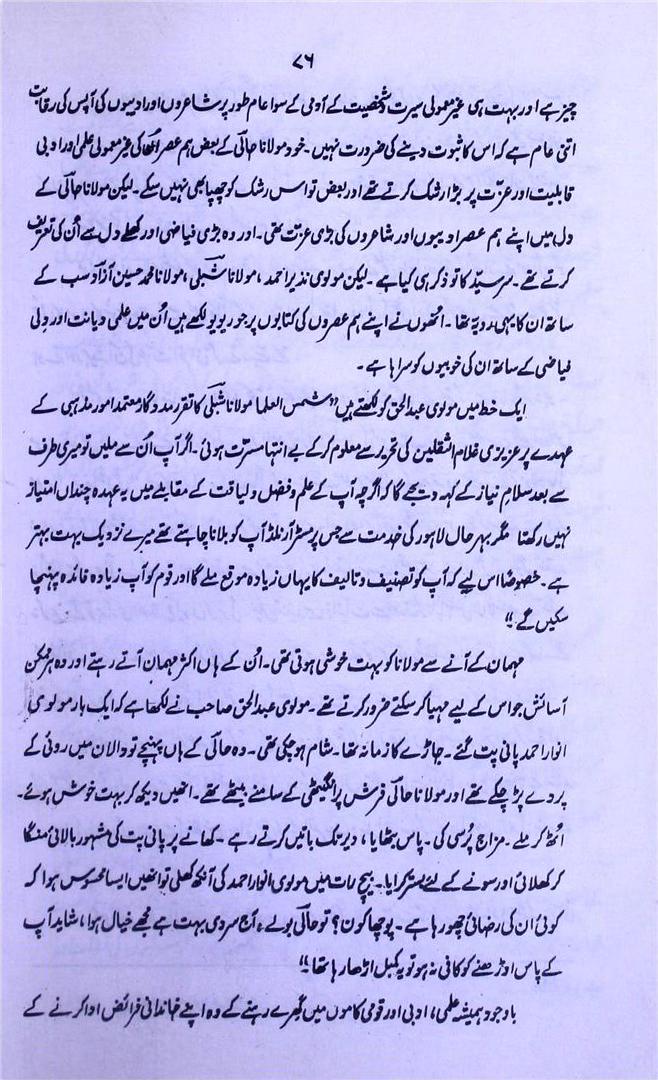 ۷۶
چیز ہے اور بہت ہی غیر معمولی سیرت و شخصیت کے آدمی کے سوا عام طور پر شاعروں اور ادیبوں کی آپس کی رقابت
اتنی عام ہے کہ اس کا ثبوت دینے کی ضرورت نہیں۔ خود مولانا حالؔی کے بعض ہم عصر اُن کی غیر معمولی علمی اور ادبی
قابلیت اور عزّت پر بڑا رشک کرتے تھے اور بعض تو اس رشک کو چھپا بھی نہیں سکے۔ لیکن مولانا حالؔی کے
دل میں اپنے ہم عصر ادیبوں اور شاعروں کی بڑی عزّت تھی۔ اور وہ بڑی فیاضی اور کھلے دل سے اُن کی تعریف
کرتے تھے۔ سرسیّد کا تو ذکر ہی کیا ہے۔ لیکن مولوی نذیر احمد، مولانا شبلیؔ، مولانا محمد حسین آزادؔ سب کے
ساتھ ان کا یہی رویّہ تھا۔ اُنھوں نے اپنے ہم عصروں کی کتابوں پر جو ریویو لکھے ہیں اُن میں علمی دیانت اور دِلی
فیاضی کے ساتھ ان کی خوبیوں کو سراہا ہے۔
ایک خط میں مولوی عبدالحق کو لکھتے ہیں "شمس العلما مولانا شبلیؔ کا تقرر مددگار معتمد امور مذہبی کے
عہدے پر عزیزی غلام الثقلین کی تحریر سے معلوم کر کے بے انتہا مسرّت ہوئی۔ اگر آپ اُن سے ملیں تو میری طرف
سے بعد سلامِ نیاز کے کہہ دیجے گا کہ اگرچہ آپ کے علم و فضل و لیاقت کے مقابلے میں یہ عہدہ چنداں امتیاز
نہیں رکھتا مگر بہرحال لاہور کی خدمت سے جس پر مسٹر آرنلڈ آپ کو بلانا چاہتے تھے میرے نزدیک بہت بہتر
ہے۔ خصوصًا اس لیے کہ آپ کو تصنیف و تالیف کا یہاں زیادہ موقع ملے گا اور قوم کو آپ زیادہ فائدہ پہنچا
سکیں گے"
مہمان کے آنے سے مولانا کو بہت خوشی ہوتی تھی۔ اُن کے ہاں اکثر مہمان آتے رہتے اور وہ ہر ممکن
آسائش جو اس کے لیے مہیا کر سکتے ضرور کرتے تھے۔ مولوی عبدالحق صاحب نے لکھا ہے کہ ایک بار مولوی
انوار احمد پانی پت گئے۔ جاڑے کا زمانہ تھا۔ شام ہو چکی تھی۔ وہ حالؔی کے ہاں پہنچے تو دالان میں روئی کے
پردے پڑ چکے تھے اور مولانا حالؔی فرش پر انگیٹھی کے سامنے بیٹھے تھے۔ انھیں دیکھ کر بہت خوش ہوئے۔
اُٹھ کر ملے۔ مزاج پُرسی کی۔ پاس بٹھایا، دیر تک باتیں کرتے رہے۔ کھانے پر پانی پت کی مشہور بالائی منگا
کر کھلائی اور سونے کے لئے بستر کرایا۔ بیچ رات میں مولوی انوار احمد کی آنکھ کھلی تو انھیں ایسا محسوس ہوا کہ
کوئی اُن کی رضائی چھو رہا ہے۔ پوچھا کون؟ تو حالؔی بولے "آج سردی بہت ہے مجھے خیال ہوا، شاید آپ
کے پاس اوڑھنے کو کافی نہ ہو تو یہ کمبل اڑھا رہا تھا"
باوجود ہمیشہ علمی، ادبی اور قومی کاموں میں گھرے رہنے کے وہ اپنے خاندانی فرائض ادا کرنے کے